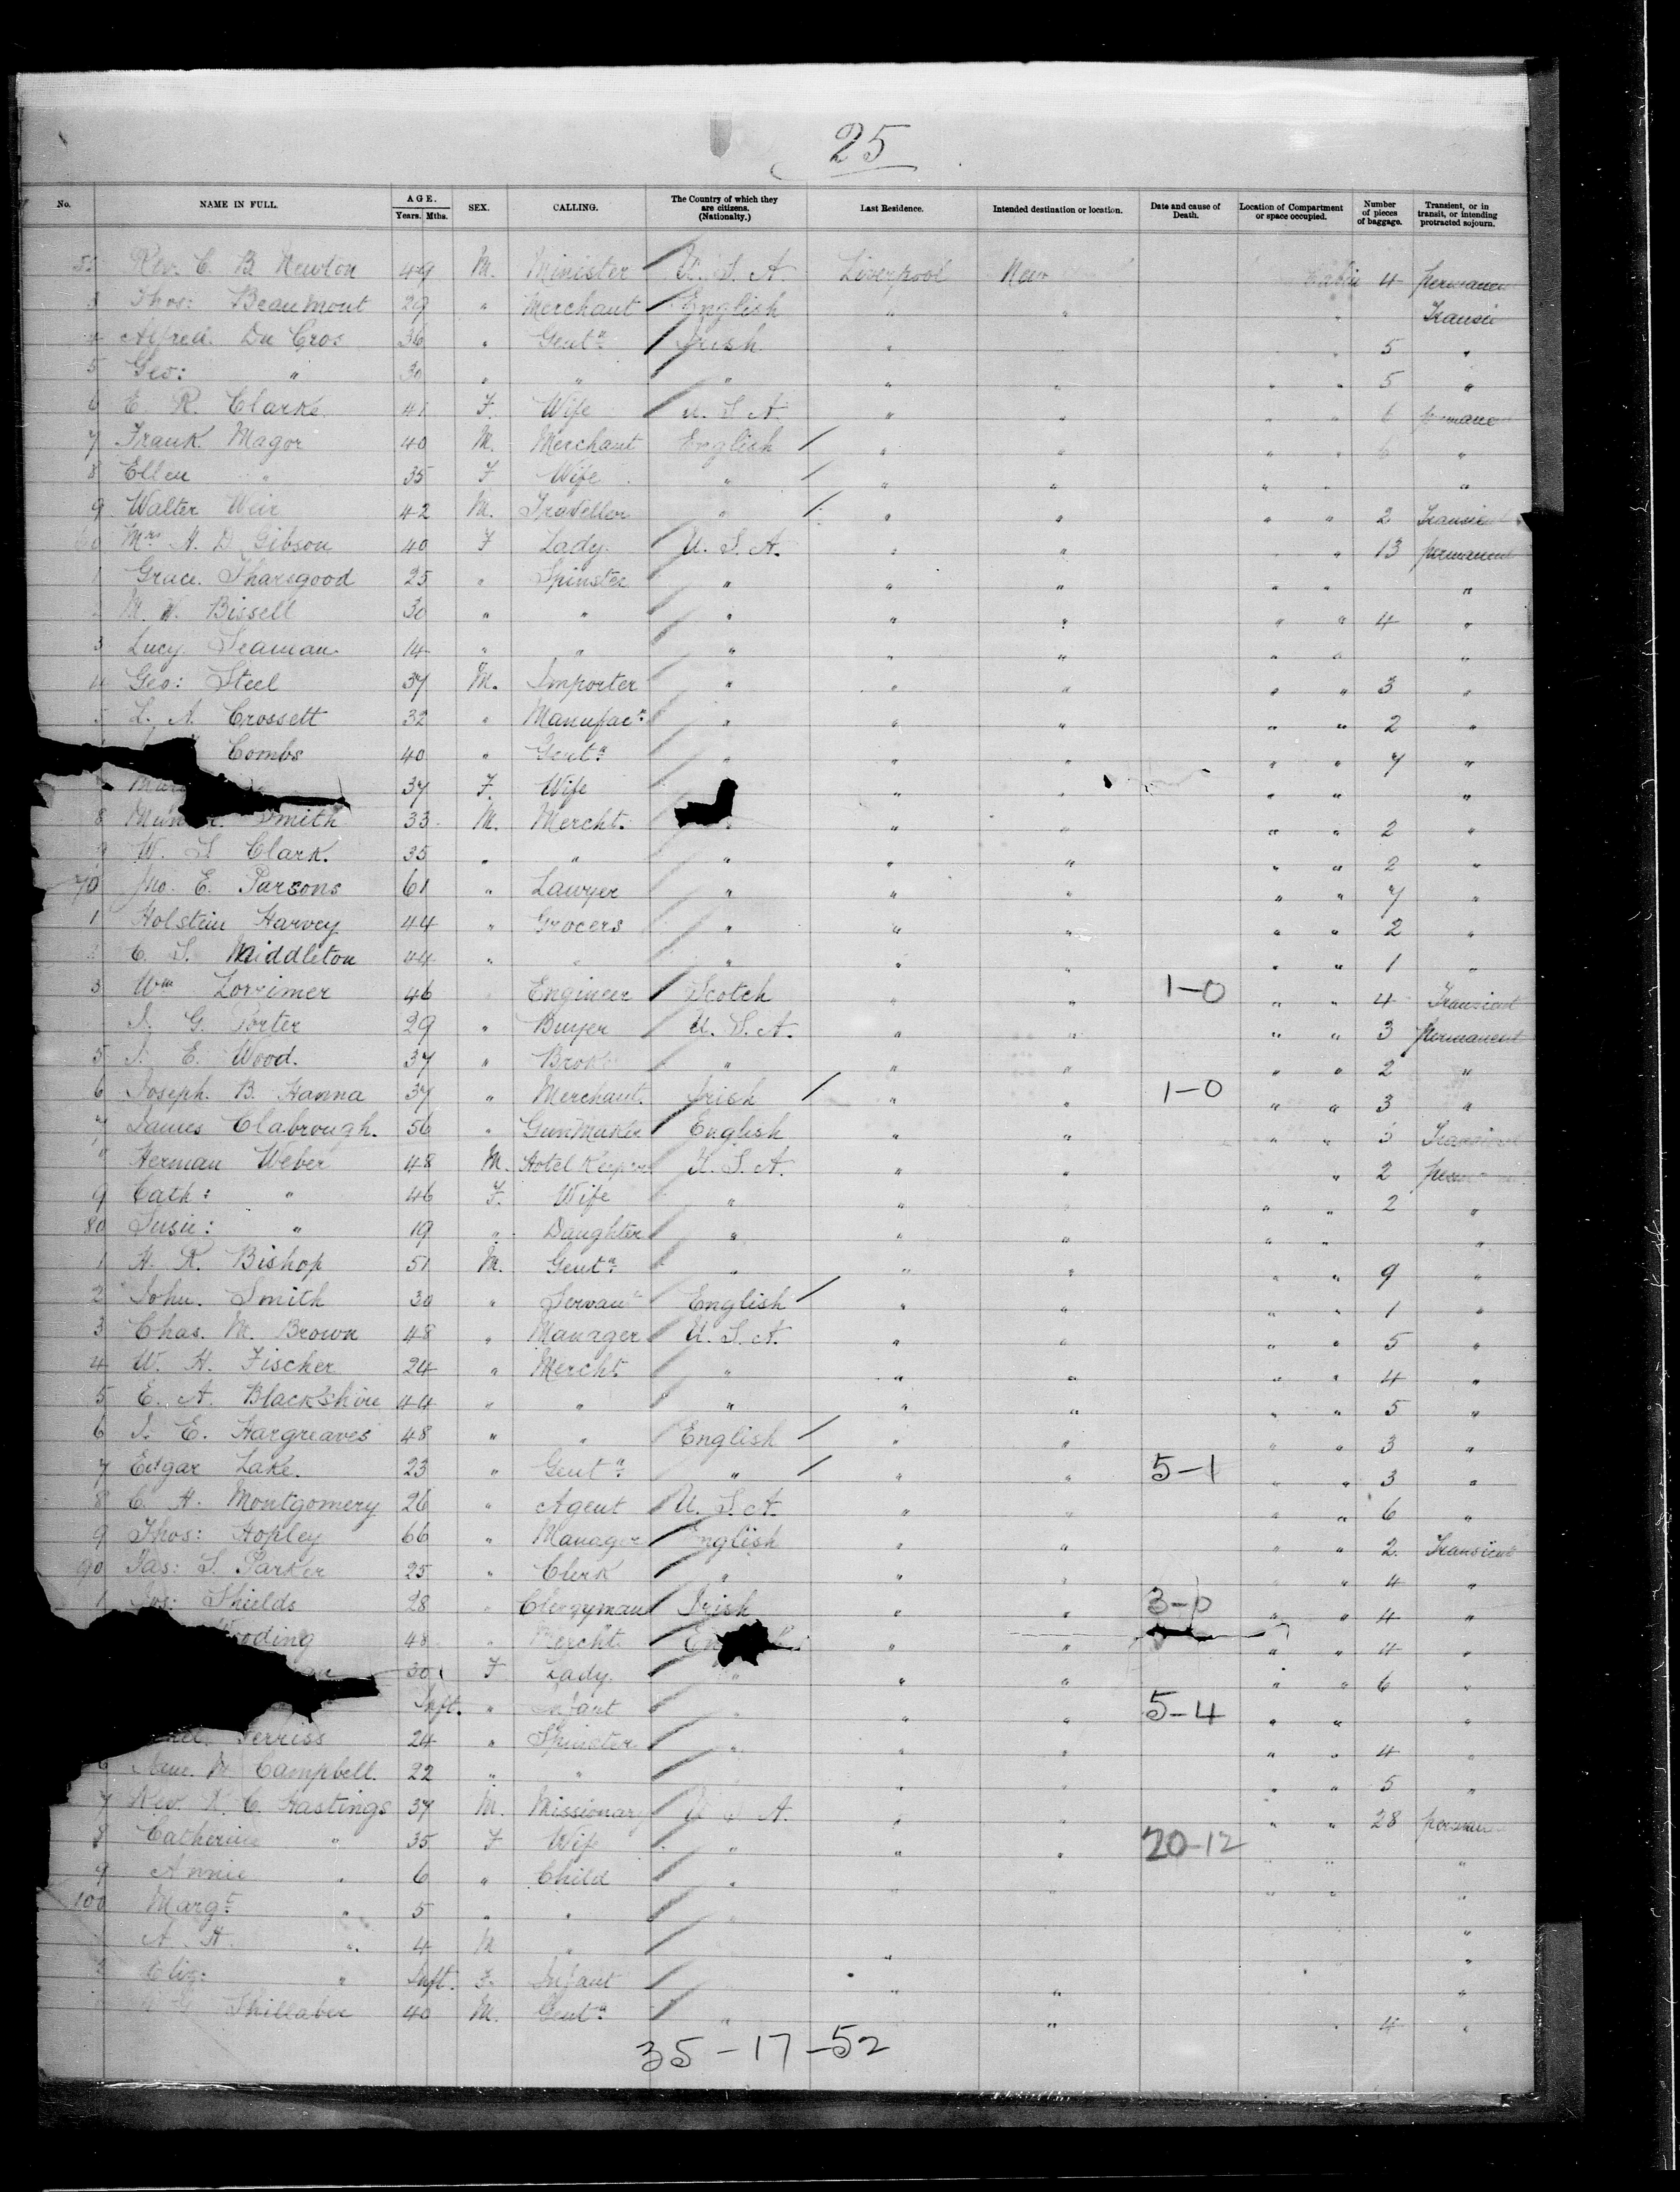 25
No. NAME IN FULL. AGE. Years. Mths. SEX. CALLING. The Country of which they are citizens. (Nationalty.) Last Residence. Intended destination or location. Date and cause of Death. Location of Compartment or space occupied. Number of pieces of baggage. Transient, or in transit, or intending protracted sojourn.
Rev. C. B. Newton 49 M. Minister U. S. A Liverpool New Cabin 4 permanen
3 Thos: Beaumont 29 " Merchant English " " " Transi
4 Alfred. Du Cros 36 " Gentn Irish " " 5 "
5 Geo: " 30 " " " " " " " 5 "
6 E. R. Clarke 41 F. Wife U. S A. " " " " 6 p manen
7 Frank Magor 40 M. Merchant English " " " " 6 "
8 Ellen " 35 F Wife " " " " " "
9 Walter Weir 42 M. Traveller " " " " " 2 Transient
60 Mrs A. D. Gibson 40 F Lady. U. S. A. " " " 13 permanent
1 Grace. Tharsgood 25 " Spinster " " " " " "
M. W. Bissell 30 " " " " " " " 4 "
3 Lucy. Seaman 14 " " " " " " " "
4 Geo: Steel 37 M. Importer " " " " " 3 "
5 L. A. Crossett 32 " Manufacr " " " " " 2 "
Combs 40 " Gentn " " " " " 7 "
37 F. Wife " " " " "
8 Smith 33 M. Mercht. " " " " 2 "
9 W. S Clark. 35 " " " " " " " 2 "
70 Jno. E. Parsons 61 " Lawyer " " " " " 7 "
1 Holstein Harvey 44 " Grocers " " " " " 2 "
C. S. Middleton 44 " " " " " " 1 "
3 Wm Lorrimer 46 Engineer Scotch " " 1-0 " " 4 Transient
S. G. Porter 29 " Buyer U. S. A. " " " 3 permanent
5 E. Wood. 37 " Brok " " " " 2 "
6 Joseph. B. Hanna 37 " Merchant. Irish " " 1-0 " " 3 "
7 James Clabrough. 56 " Gun Maker English " " " " 3 Transient
Herman Weber 48 M. Hotel Keeper U. S. A. " " " 2
9 Cath: " 46 F. Wife " " " " 2 "
80 Susie: " 19 " Daughter " " " " " "
1 H. R. Bishop 51 M. Gentn " " " " " 9 "
2 John. Smith 30 " Servant English " " " " 1 "
3 Chas. M. Brown 48 " Manager U. S. A. " " " " 5 "
4 W. H. Fischer 24 " Mercht. " " " " " 4 "
5 E. A. Blackshire 44 " " " " " " " 5 "
6 E. Hargreaves 48 " " English " " " " 3 "
7 Edgar Lake. 23 " Gentn " " " 5-1 " " 3 "
8 C. H. Montgomery 26 " Agent U. S. A " " " " 6 "
9 Thos: Hopley 66 " Manager English " " " " 2. Transient
90 Jas: S. Parker 25 " Clerk " " " " 4 "
1 Jos: Shields 28 " Clergyman Irish " " 3-0 " " 4 "
ooding 48 " Mercht. En " " " " 4 "
30 F Lady. " " " " " 6 "
Inft. " Infant " " " 5-4 " " "
Terriss 24 " Spinster " " " " " 4 "
6 Campbell. 22 " " " " " " " 5 "
7 Rev. R. C. Hastings 37 M. Missionary U S A. " " " " 28 perman
8 Catherine " 35 F Wife " " " 20-12 " "
9 Annie " 6 " Child " " " " " "
100 Margt " 5 " " " "
A. H. " 4 M " " "
Eliz: " Inft. F. Infant " " "
Shillaber 40 M. Gentn " " " 4 "
35-17-52